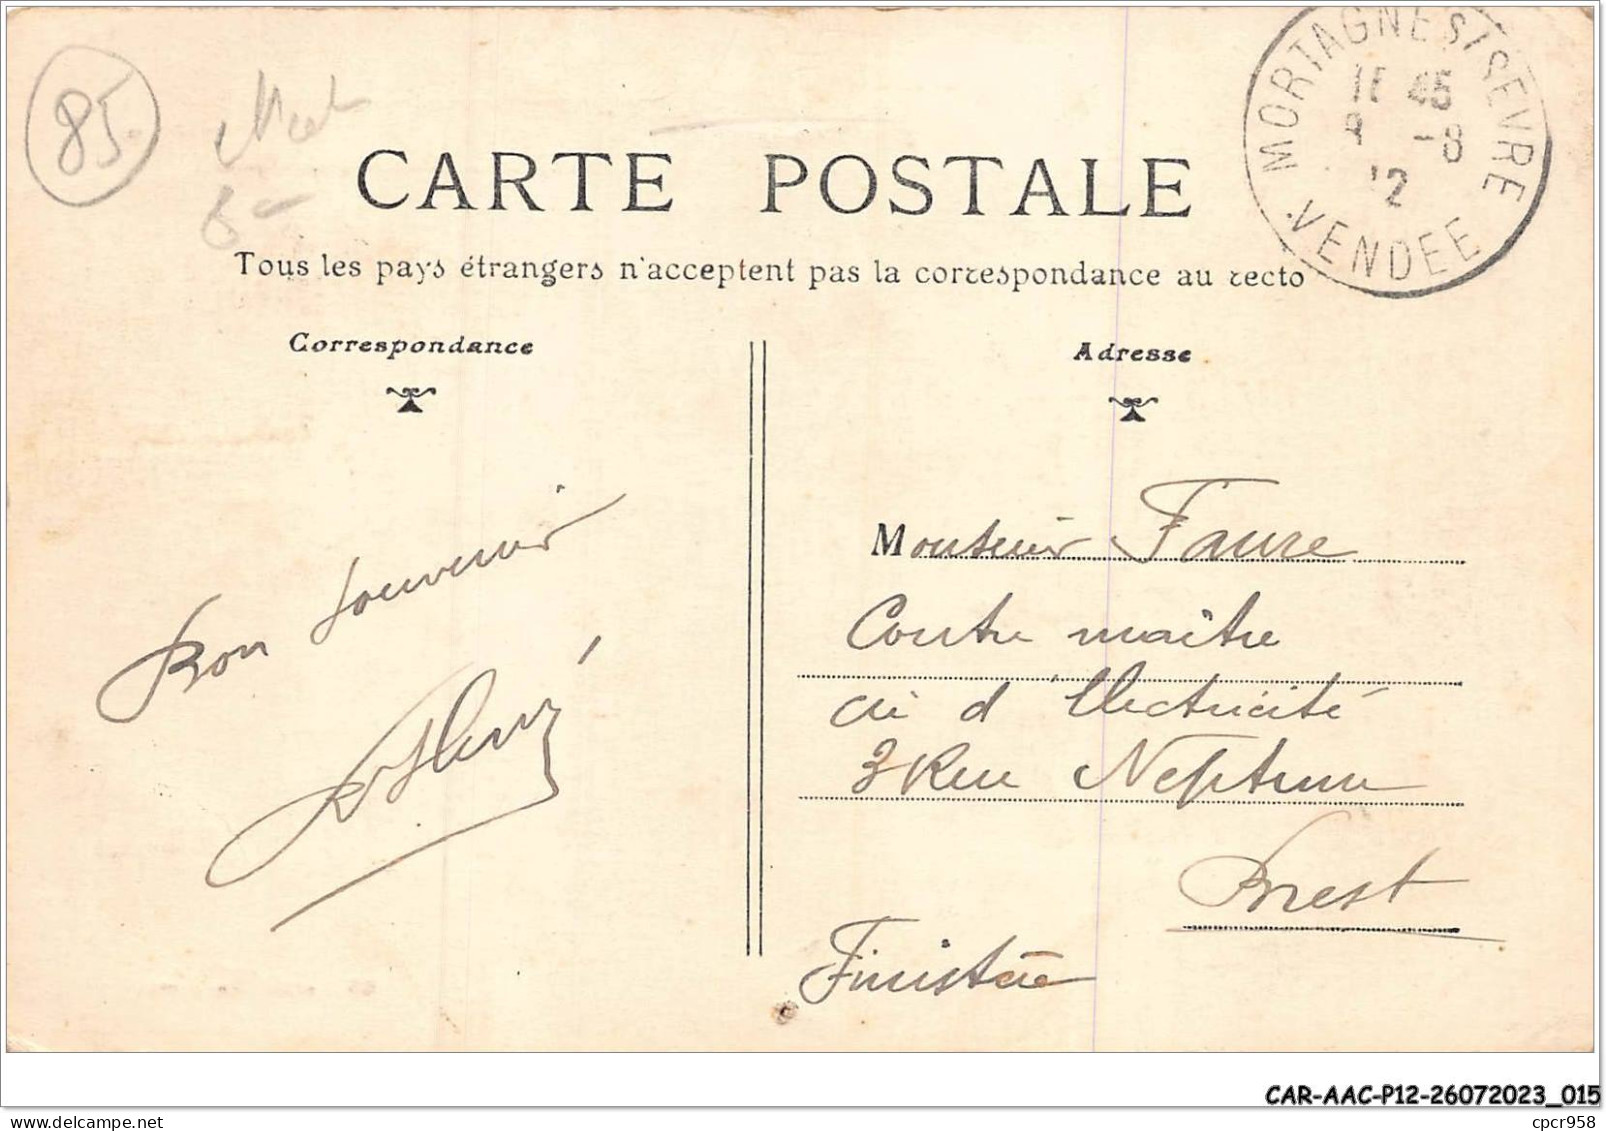 85
MORTAGNE S/ SEVRE
11 45
-8
12
VENDEE
CARTE POSTALE
Tous les pays étrangers n'acceptent pas la correspondance au recto
Correspondance
Adresse
Bon souvenir
Monsieur Faure
Contre maître
Cie d'Electricité
3 Rue Neptune
Brest
Finistère
CAR-AAC-P12-26072023_015
delcampe.net
cpcr958